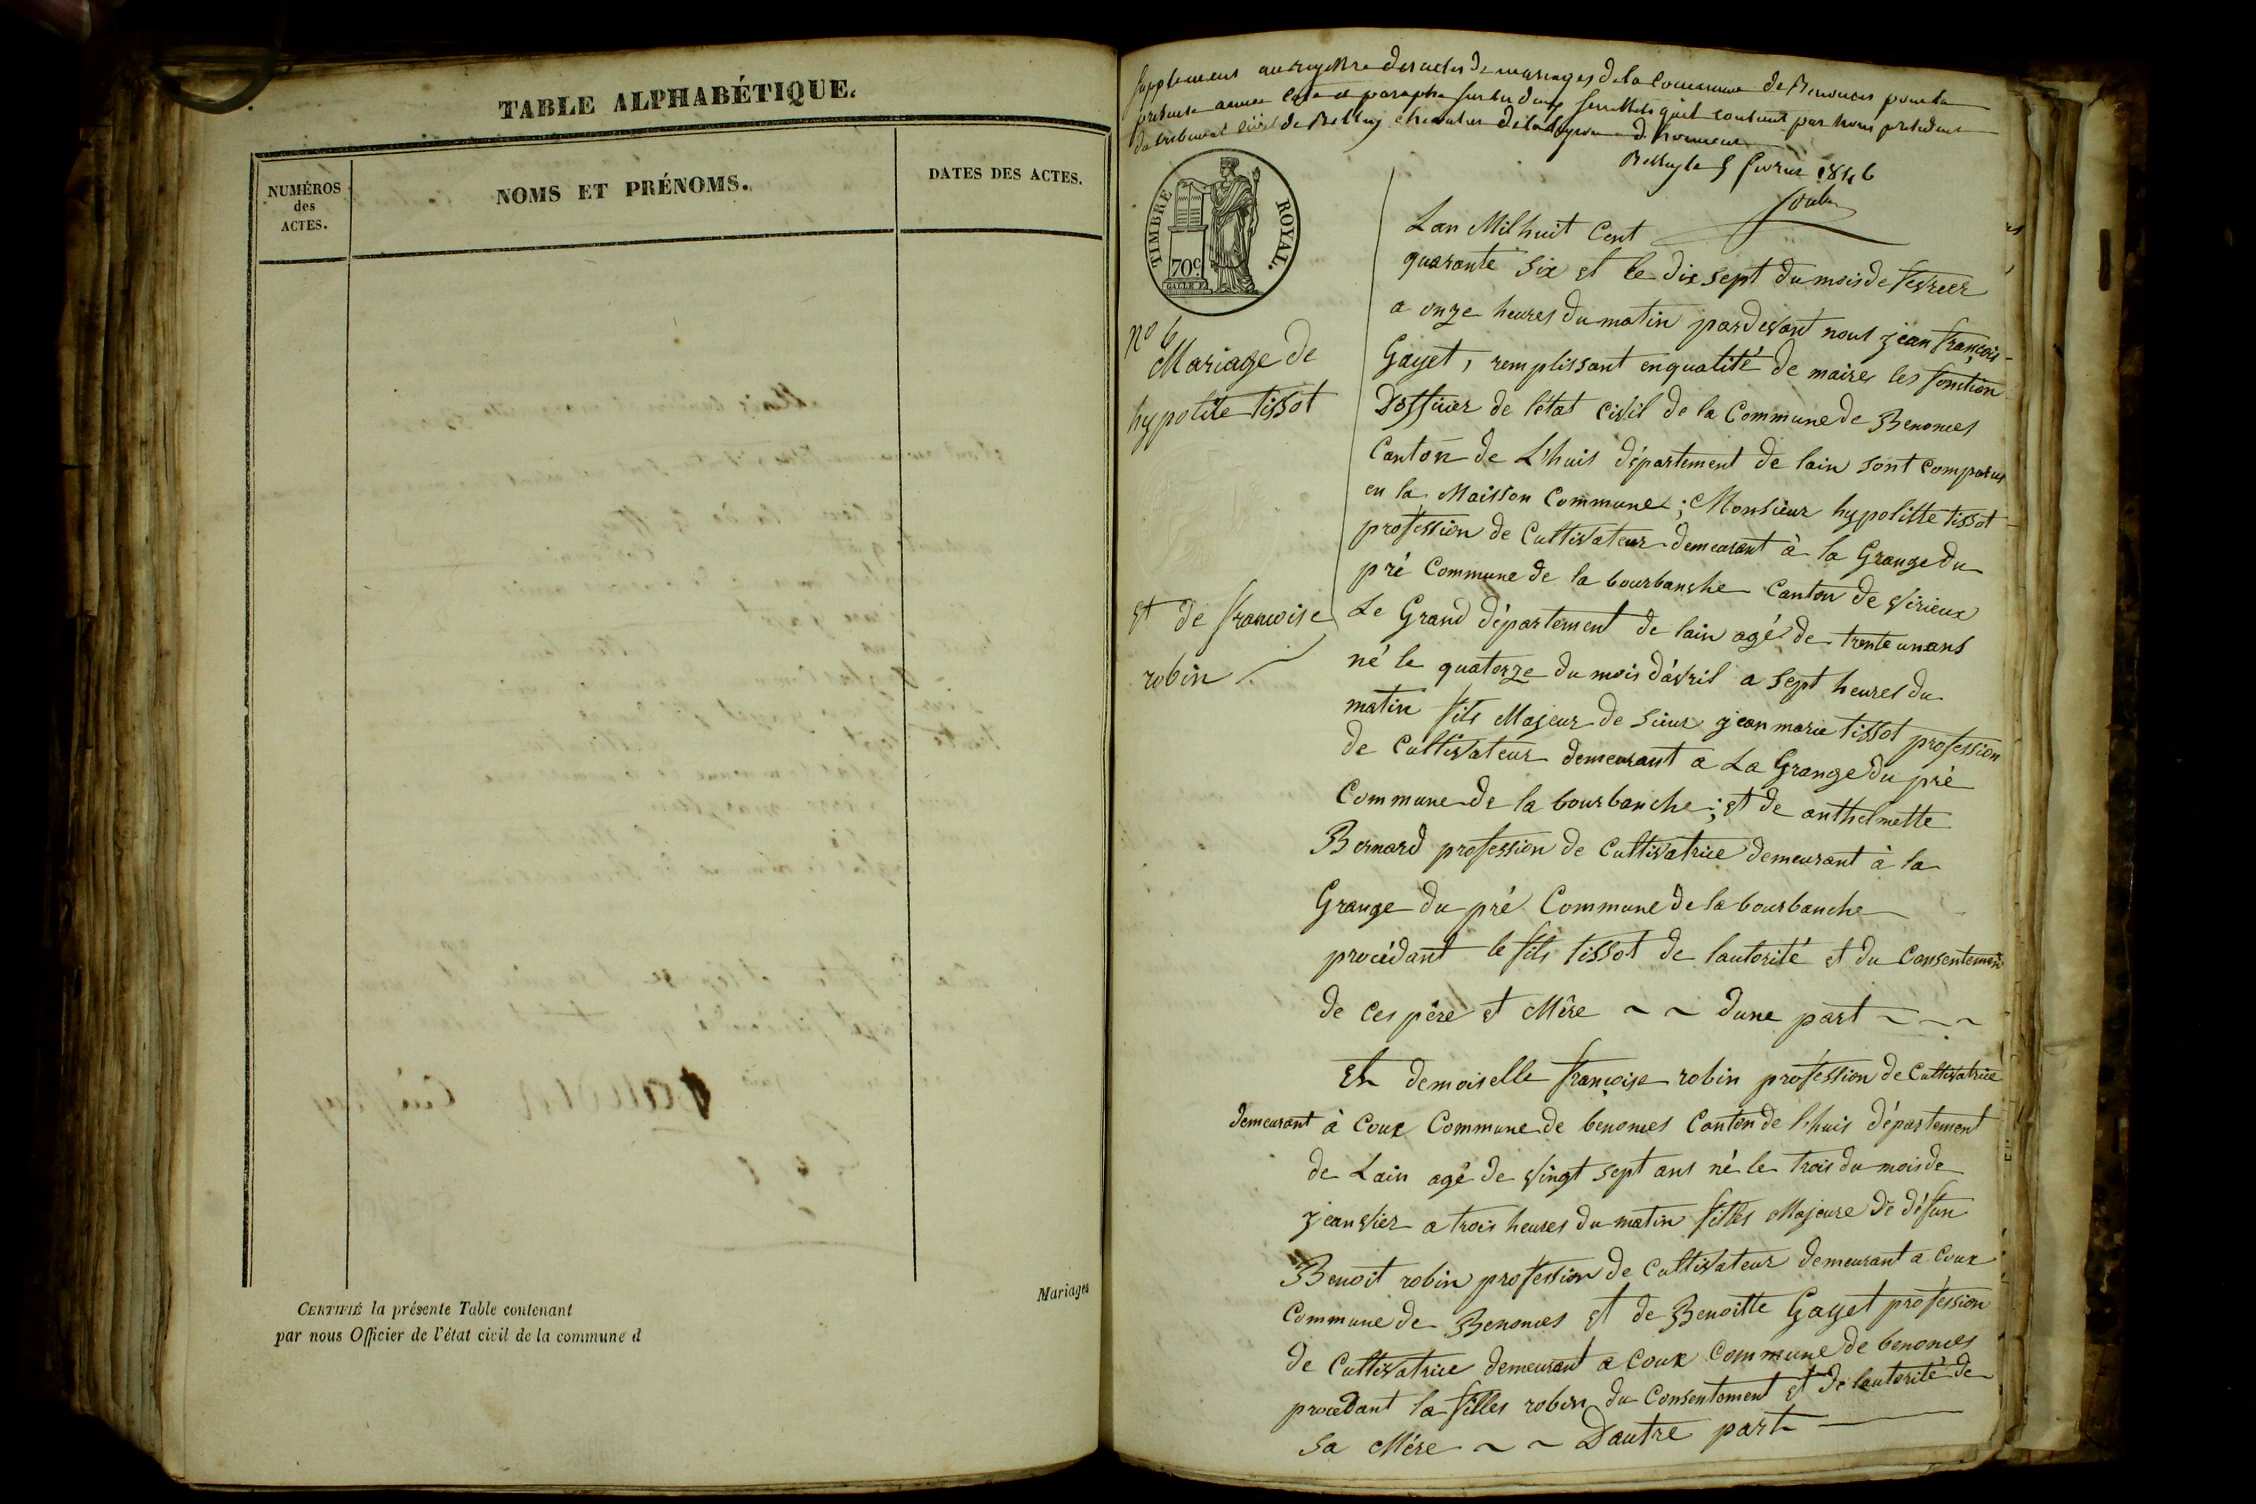 TABLE ALPHABÉTIQUE.
NUMÉROS
des
ACTES.
NOMS ET PRÉNOMS.
DATES DES ACTES.
CERTIFIÉ la présente Table contenant
par nous Officier de l'état civil de la commune d
Mariages
Supplement au registre des actes de mariages de la Commune de Benonces pour la
presente année Coté et paraphé sur les deux feuillets qu'il contient par nous president
du tribunal civil de Belley chevalier de la legion d'honneur
Belley le 5 fevrier 1846
TIMBRE ROYAL.
70c
no 6
Mariage de
hypolite tissot
Et de francoise
robin
Lan Mil huit Cent
quarante six et le dix sept du mois de fevrier
a onze heures du matin pardevant nous jean françois
Gayet, remplissant en qualité de maires les fonction
Dofficier de létat civil de la Commune de Benonces
Canton de L'huis département de lain sont comparus
en la Maisson Commune ; Monsieur hypolitte tissot
profession de Cultivateur demeurant à la Grange du
pré Commune de la bourbanche Canton de virieux
Le Grand département de lain agé de trente un ans
né le quatorze du mois dávril a sept heures du
matin fils Majeur de sieur jean marie tissot profession
de Cultivateur demeurant a La Grange du pré
Commune de la bourbanche ; et de anthelmette
Bernard profession de Cultivatrice demeurant à la
Grange du pré Commune de la bourbanche
procédant le fils tissot de lautorité et du Consentement
de ces père et Mère ~ ~ dune part ~ ~ ~
Et demoiselle françoise robin profession de Cultivatrice
demeurant à Coux Commune de benonces Canton de lhuis département
de Lain agé de vingt sept ans né le trois du mois de
jeanvier a trois heures du matin filles Majeure de défun
Benoit robin profession de Cultivateur demeurant a Coux
Commune de Benonces et de Benoitte Gayet profession
de Cultivatrice demeurant a Coux Commune de benonces
procedant la filles robin du Consentement et de lautorité de
sa Mére ~ ~ Dautre part